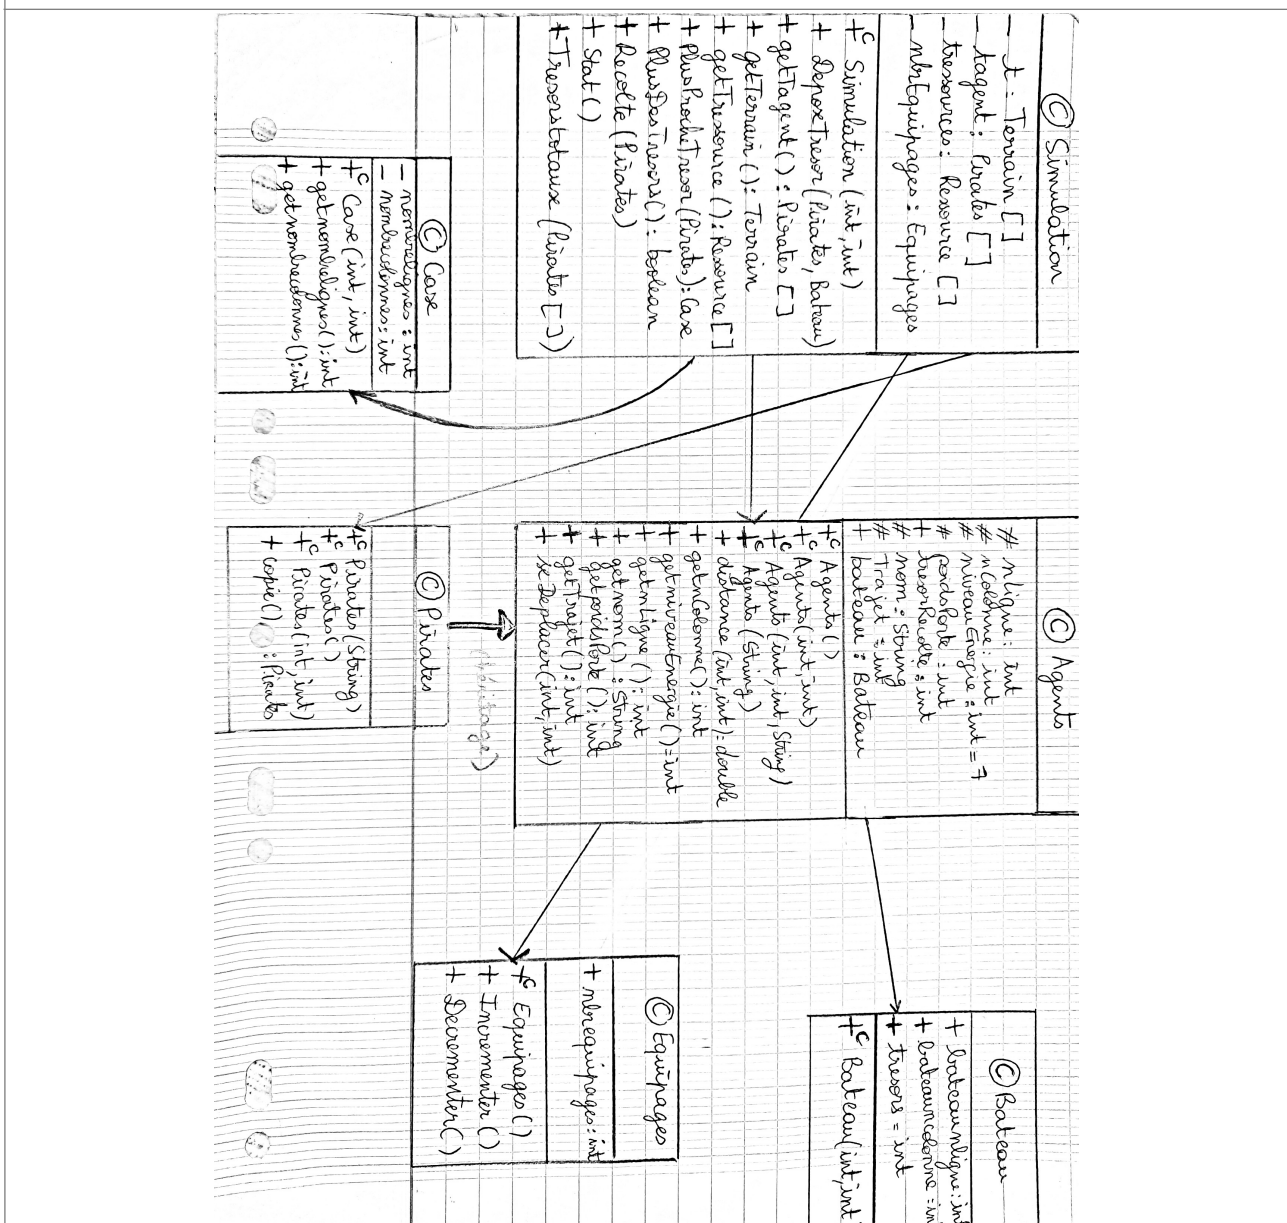 © Simulation
- t : Terrain []
- tagent : Pirates []
- tressources : Ressource []
- nbrEquipages : Equipages
+c Simulation (int, int)
+ DeposeTresor (Pirates, Bateau)
+ getTagent () : Pirates []
+ getTerrain () : Terrain
+ getTressource () : Ressource []
+ PlusProcheTresor (Pirates) : Case
+ PlusDesTresors () : boolean
+ Recolte (Pirates)
+ Stat ()
+ Tresorstotaux (Pirates [])
© Case
- nombrelignes : int
- nombrecolonnes : int
+c Case (int, int)
+ getnombrelignes () : int
+ getnombrecolonnes () : int
© Agents
# nLigne : int
# nColonne : int
# niveauEnergie : int = 7
# poidsPorte : int
+ tresorRecolte : int
# nom : String
# Trajet : int
+ bateau : Bateau
+c Agents ()
+c Agents (int, int)
+c Agents (int, int, String)
+c Agents (String)
+ distance (int, int) : double
+ getnColonne () : int
+ getniveauEnergie () = int
+ getnLigne () : int
+ getnom () : String
+ getpoidsPorte () : int
+ getTrajet () : int
+ seDeplacer (int, int)
(héritage)
© Pirates
+c Pirates (String)
+c Pirates ()
+c Pirates (int, int)
+ copie () : Pirates
© Bateau
+ bateaunligne : int
+ bateauncolonne : in
+ tresors = int
+c Bateau (int, int
© Equipages
+ nbrequipages : int
+c Equipages ()
+ Incrementer ()
+ Decrementer ()